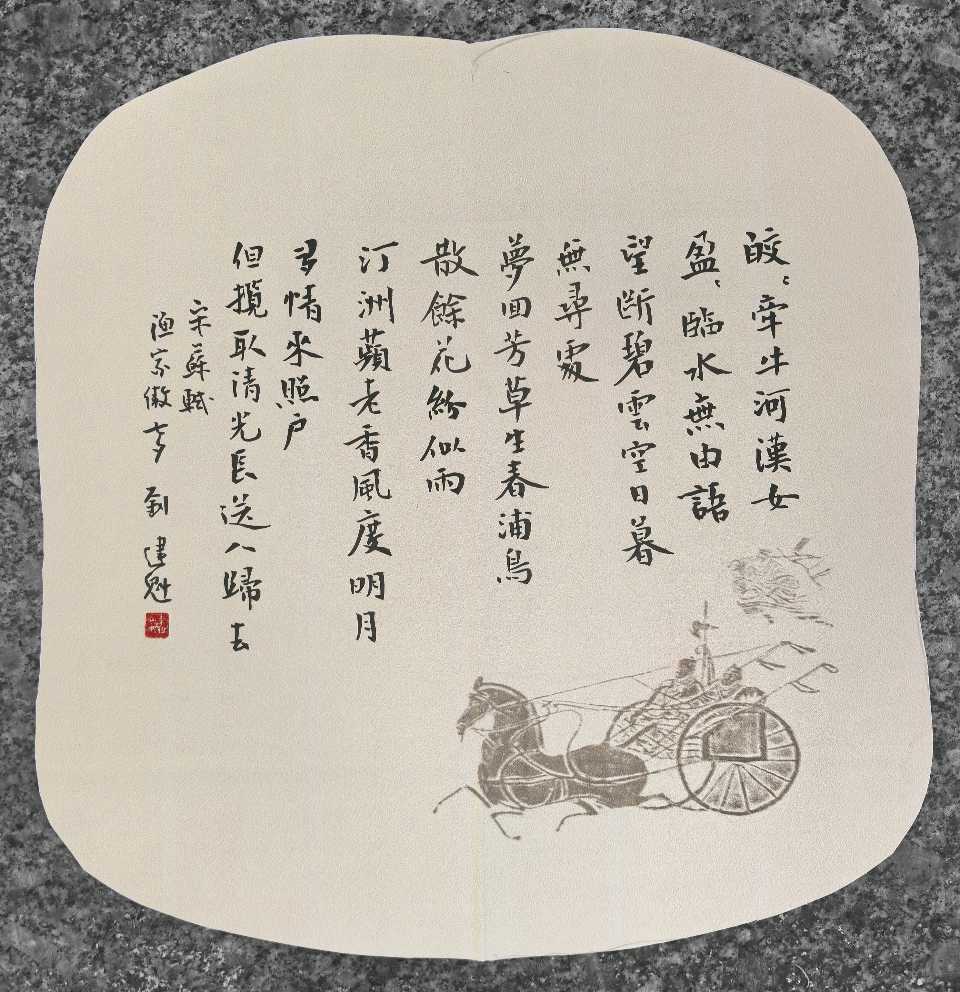 皎〻牽牛河漢女
盈〻臨水無由語
望斷碧雲空日暮
無尋處
夢回芳草生春浦鳥
散餘花紛似雨
汀洲蘋老香風度明月
多情來照戶
但攬取清光長送人歸去
宋蘇軾
漁家傲七夕 劉建魁